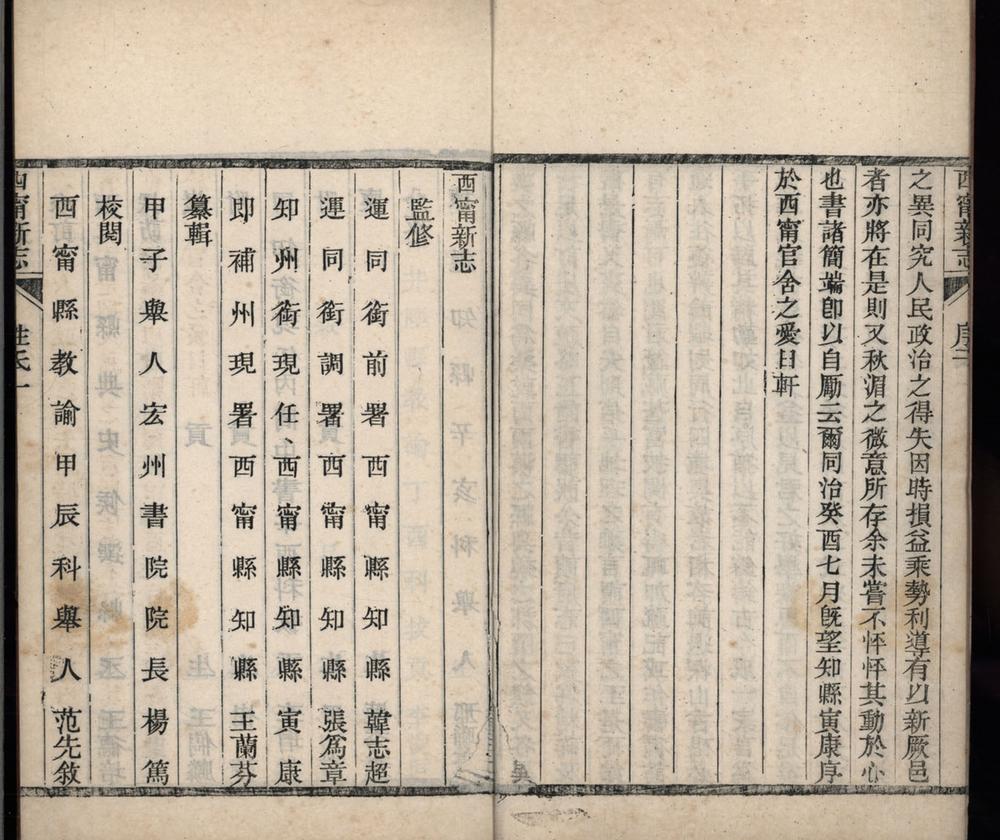 西甯新志
序二
之異同究人民政治之得失因時損益乘勢利導有以新厥邑
者亦將在是則又秋湄之微意所存余未嘗不怦怦其動於心
也書諸簡端卽以自勵云爾同治癸酉七月旣望知縣寅康序
於西甯官舍之愛日軒
西甯新志
監修
運同銜前署西甯縣知縣韓志超
運同銜調署西甯縣知縣張爲章
知州銜現任西甯縣知縣寅康
即補州現署西甯縣知縣王蘭芬
纂輯
甲子舉人宏州書院院長楊篤
校閱
西甯縣教諭甲辰科舉人范先敘
西甯新志
姓氏一